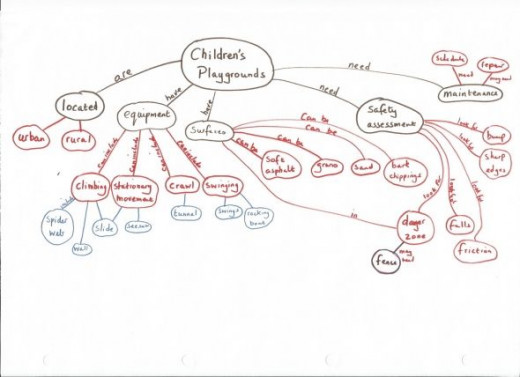 Children's
Playgrounds
are
have
have
need
need
located
equipment
Surfaces
Safety
assessment
maintenance
Schedule
need
repair
may need
urban
rural
can include
can include
can include
can include
can be
can be
can be
can be
safe
asphalt
grano
sand
bark
chippings
look for
look for
look for
look for
look for
bump
sharp
edges
Climbing
stationary
movement
crawl
swinging
danger
zone
falls
friction
in
Spider
web
wall
slide
seesaw
tunnel
swings
rocking
fence
may
need